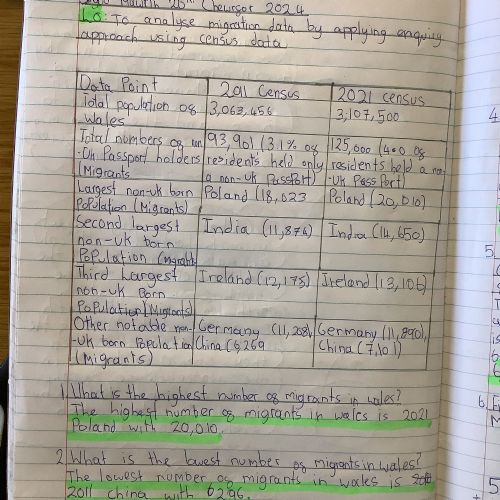 Mawrth 20th Chwefror 2024
L.O: To analyse migration data by applying enquiry
approach using census data
Data Point 2011 Census 2021 census
Total population of Wales 3,063,456 3,107,500
Total numbers of non-Uk Passport holders (Migrants 93,901 (3.1% of residents held only a non-UK Passport) 125,000 (4.0 of residents held a non-UK Passport)
Largest non-uk born Population (Migrants) Poland (18,023 Poland (20,010)
Second largest non-uk born Population (Migrants India (11,874) India (14,650)
Third Largest non-UK Born Population (Migrants) Ireland (12,175) Ireland (13,106)
Other notable non-UK born Population (Migrants) Germany (11,208), China (6,269 Germany (11,890), China (7,101)
1 What is the highest number of migrants in wales?
The highest number of migrants in wales is 2021
Poland with 20,010.
2 What is the lowest number of migrants in wales?
The lowest number of migrants in wales is
2011 China with 6296.
4
5
6
M
5